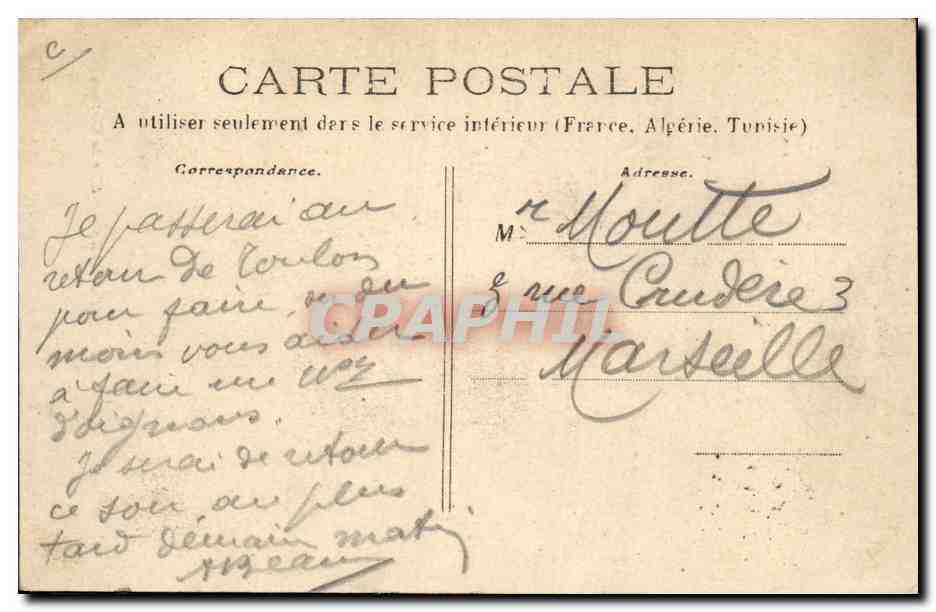 c
CARTE POSTALE
A utiliser seulement dans le service intérieur (France, Algérie, Tunisie)
Correspondance.
Adresse.
Je passerai au
retour de Toulon
pour faire, ou du
moins vous aider
à faire une
d'oignons.
Je serai de retour
ce soir au plus
tard demain matin
ABeau
Mr Moutte
rue Crudère 3
Marseille
CPAPHIL